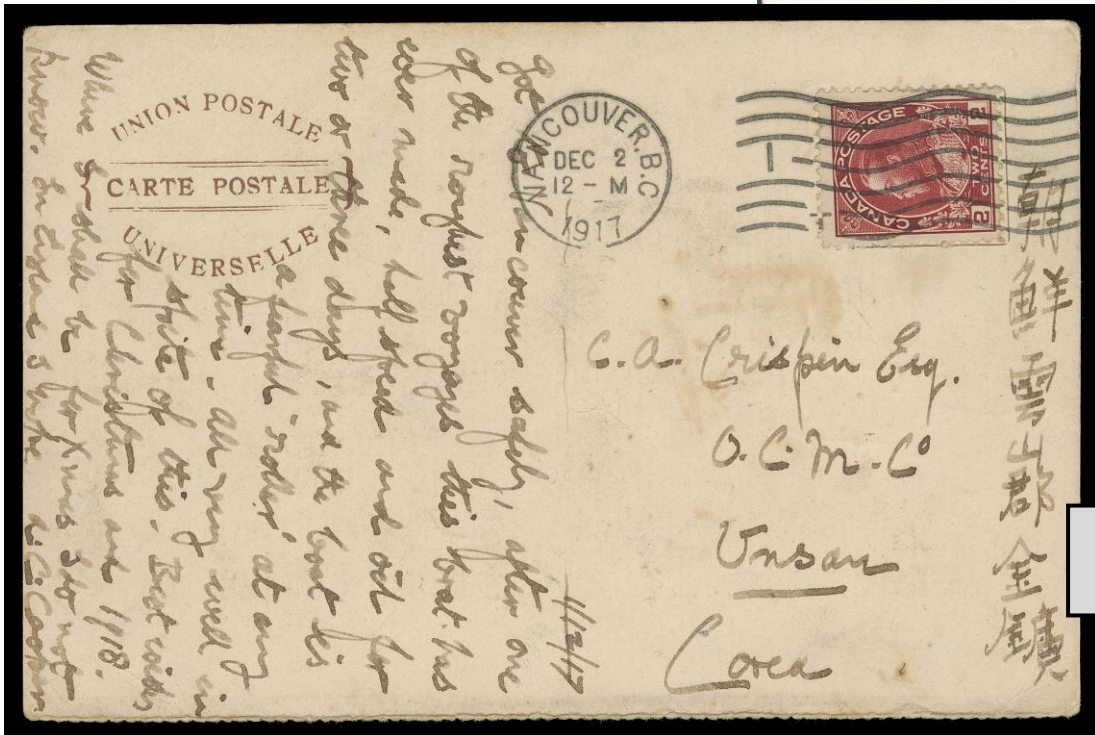 UNION POSTALE
CARTE POSTALE
UNIVERSELLE
VANCOUVER, B.C.
DEC 2
12 - M
1917
CANADA POSTAGE
2 TWO CENTS 2
1/12/17
Got Vancouver safely, after one
of the roughest voyages this boat has
ever made, half speed and oil for
two or three days, and the boat is
a fearful "roller" at any
time. All very well in
spite of this. Best wishes
for Christmas and 1918.
Where I shall be for Xmas I do not
know. Cooper
C. A. Crispin Esq.
O. C. M. Co
Unsan
Corea
朝鮮
金鑛